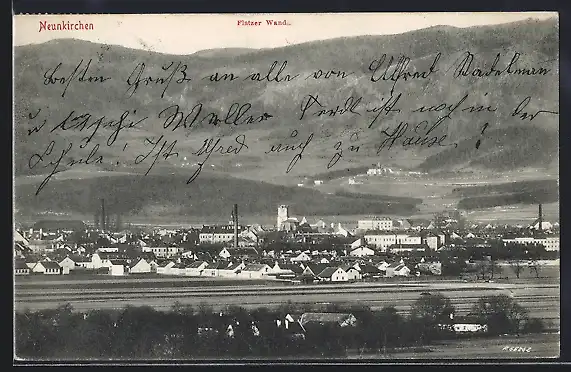 Neunkirchen
Flatzer Wand.
Besten Gruß an alle von Alfred Stadelman
u. Müller. Ferdl ist noch in der
Schule! Ist Fred auch zu Hause?
R 66242